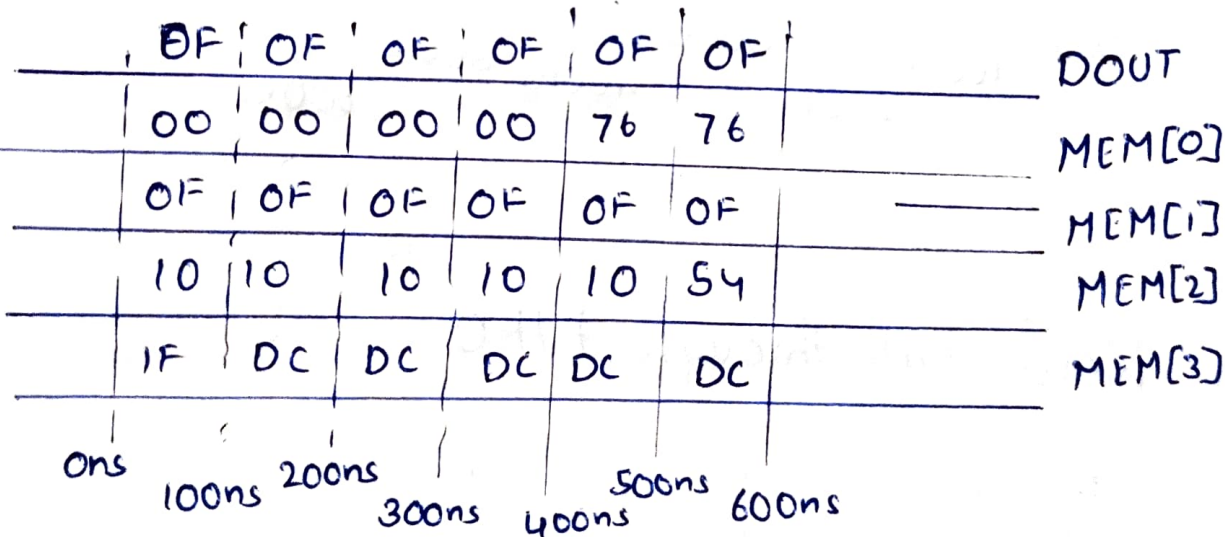 0F 0F 0F 0F 0F 0F DOUT
00 00 00 00 76 76 MEM[0]
0F 0F 0F 0F 0F 0F MEM[1]
10 10 10 10 10 54 MEM[2]
1F DC DC DC DC DC MEM[3]
0ns 100ns 200ns 300ns 400ns 500ns 600ns